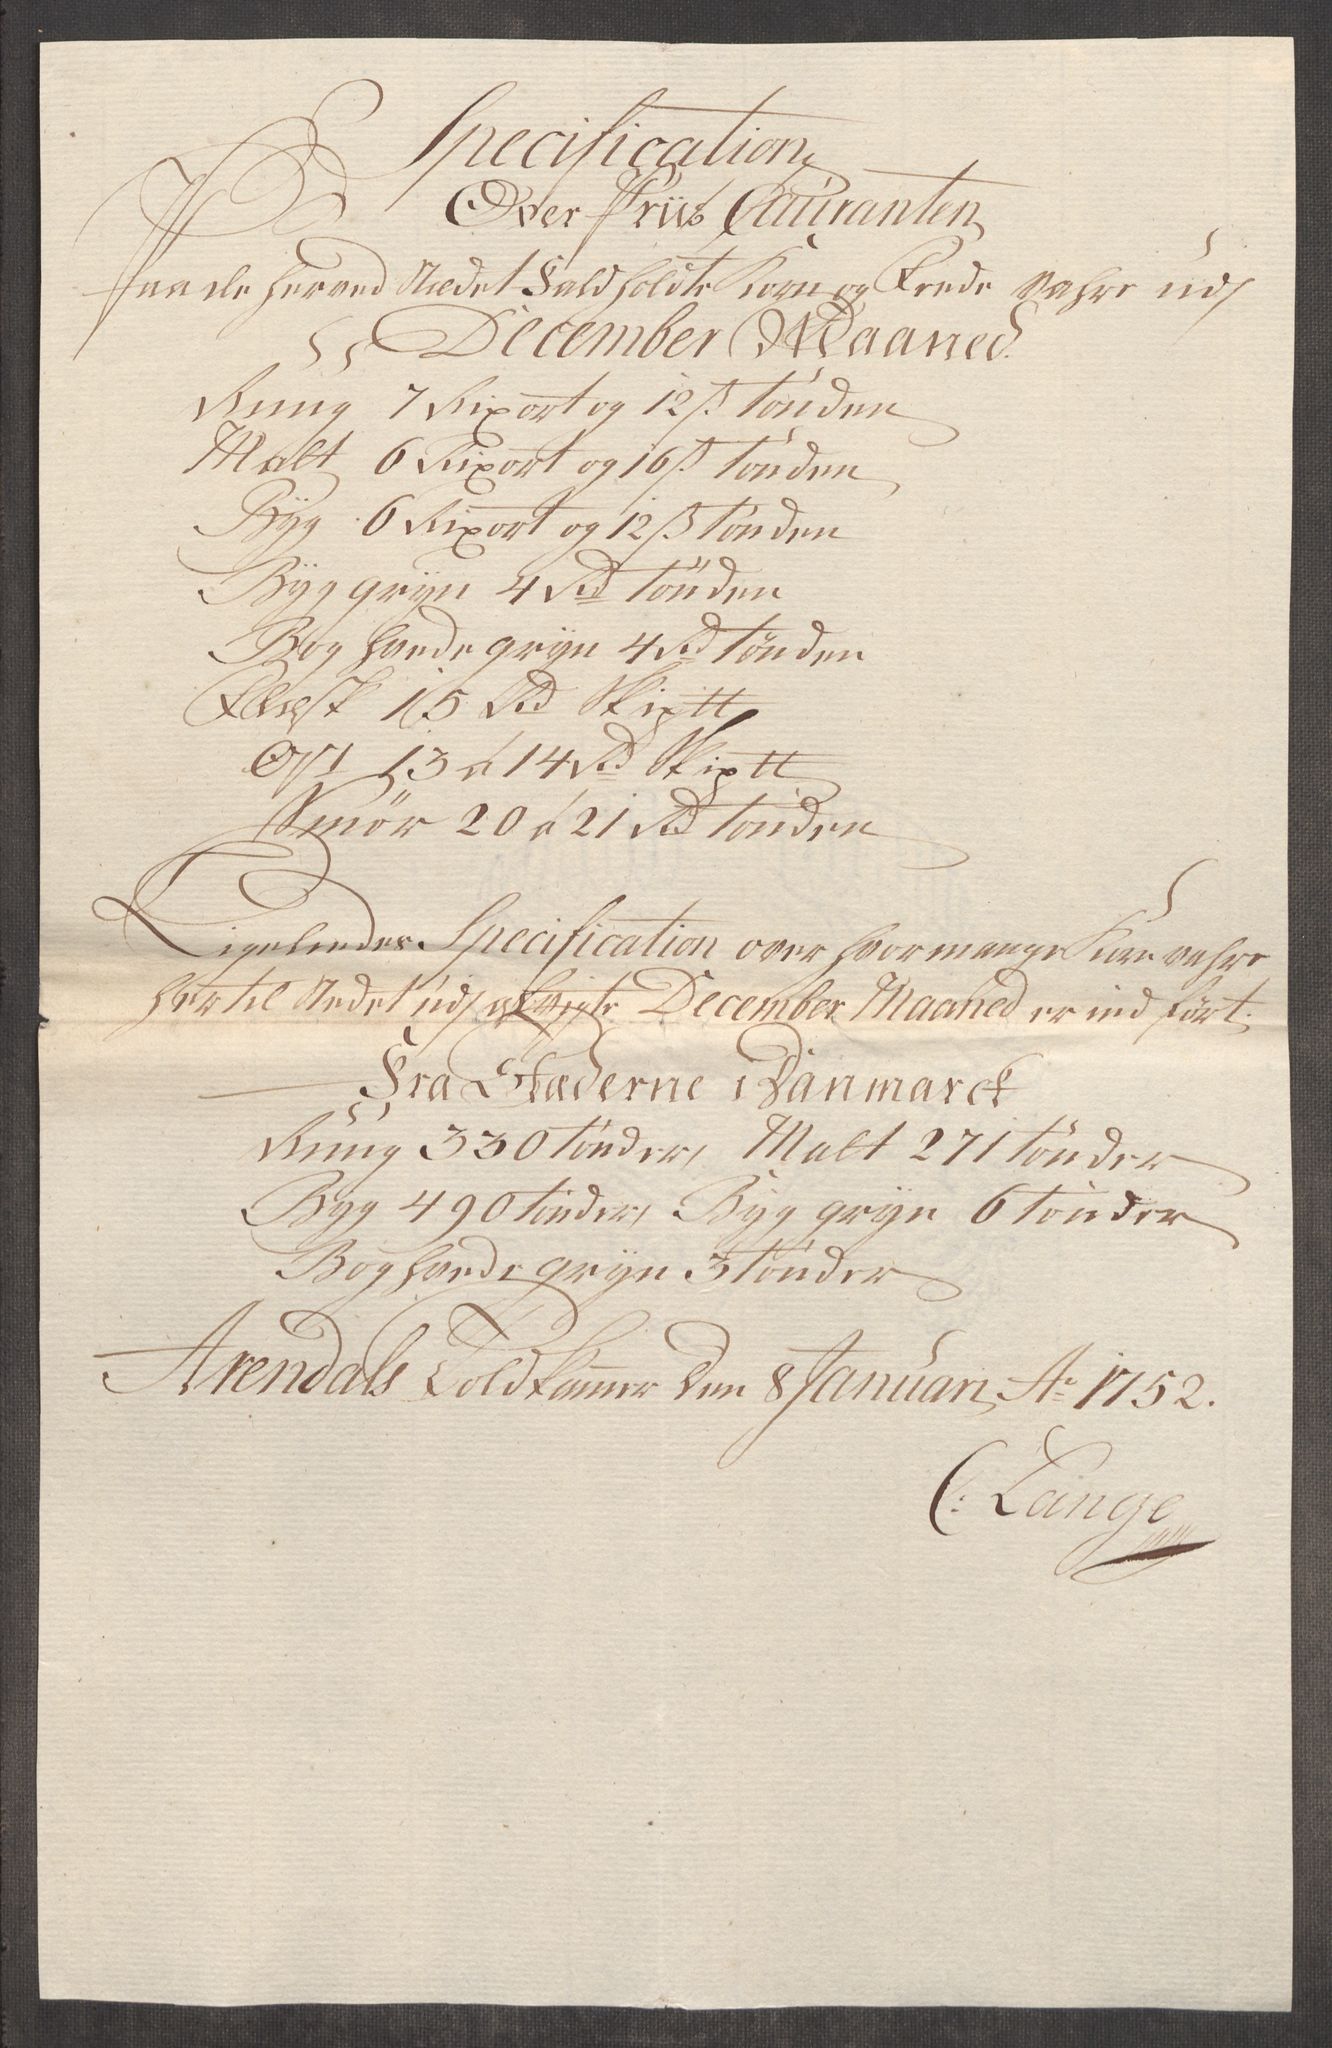 Specification
Over Priis Couranten
Paa de herved Stædet Fald holdte Korn og Fede vahre udj
December Maaned
Rüug 7 Rixort og 12 ß tönden
Malt 6 Rixort og 16 ß tönden
Byg 6 Rixort og 12 ß tönden
Byggryn 4 Rd tönden
Boghvedegryn 4 Rd tønden
Flæsk 15 Rd Skiptt
Ost 13 á 14 Rd Skiptt
Smör 20 á 21 Rd tönden
Ligeledes Specification over hvormange Korn vahre
hertil Stedet udj December Maaned er ind fört.
Fra Stæderne i Danmarck
Rüug 330 tönder, Malt 271 tönder
Byg 490 tönder, Byggryn 6 tönder
Boghvedegryn 3 tönder
Arendals Toldkamer den 8 Januari Ao 1752.
C: Lange